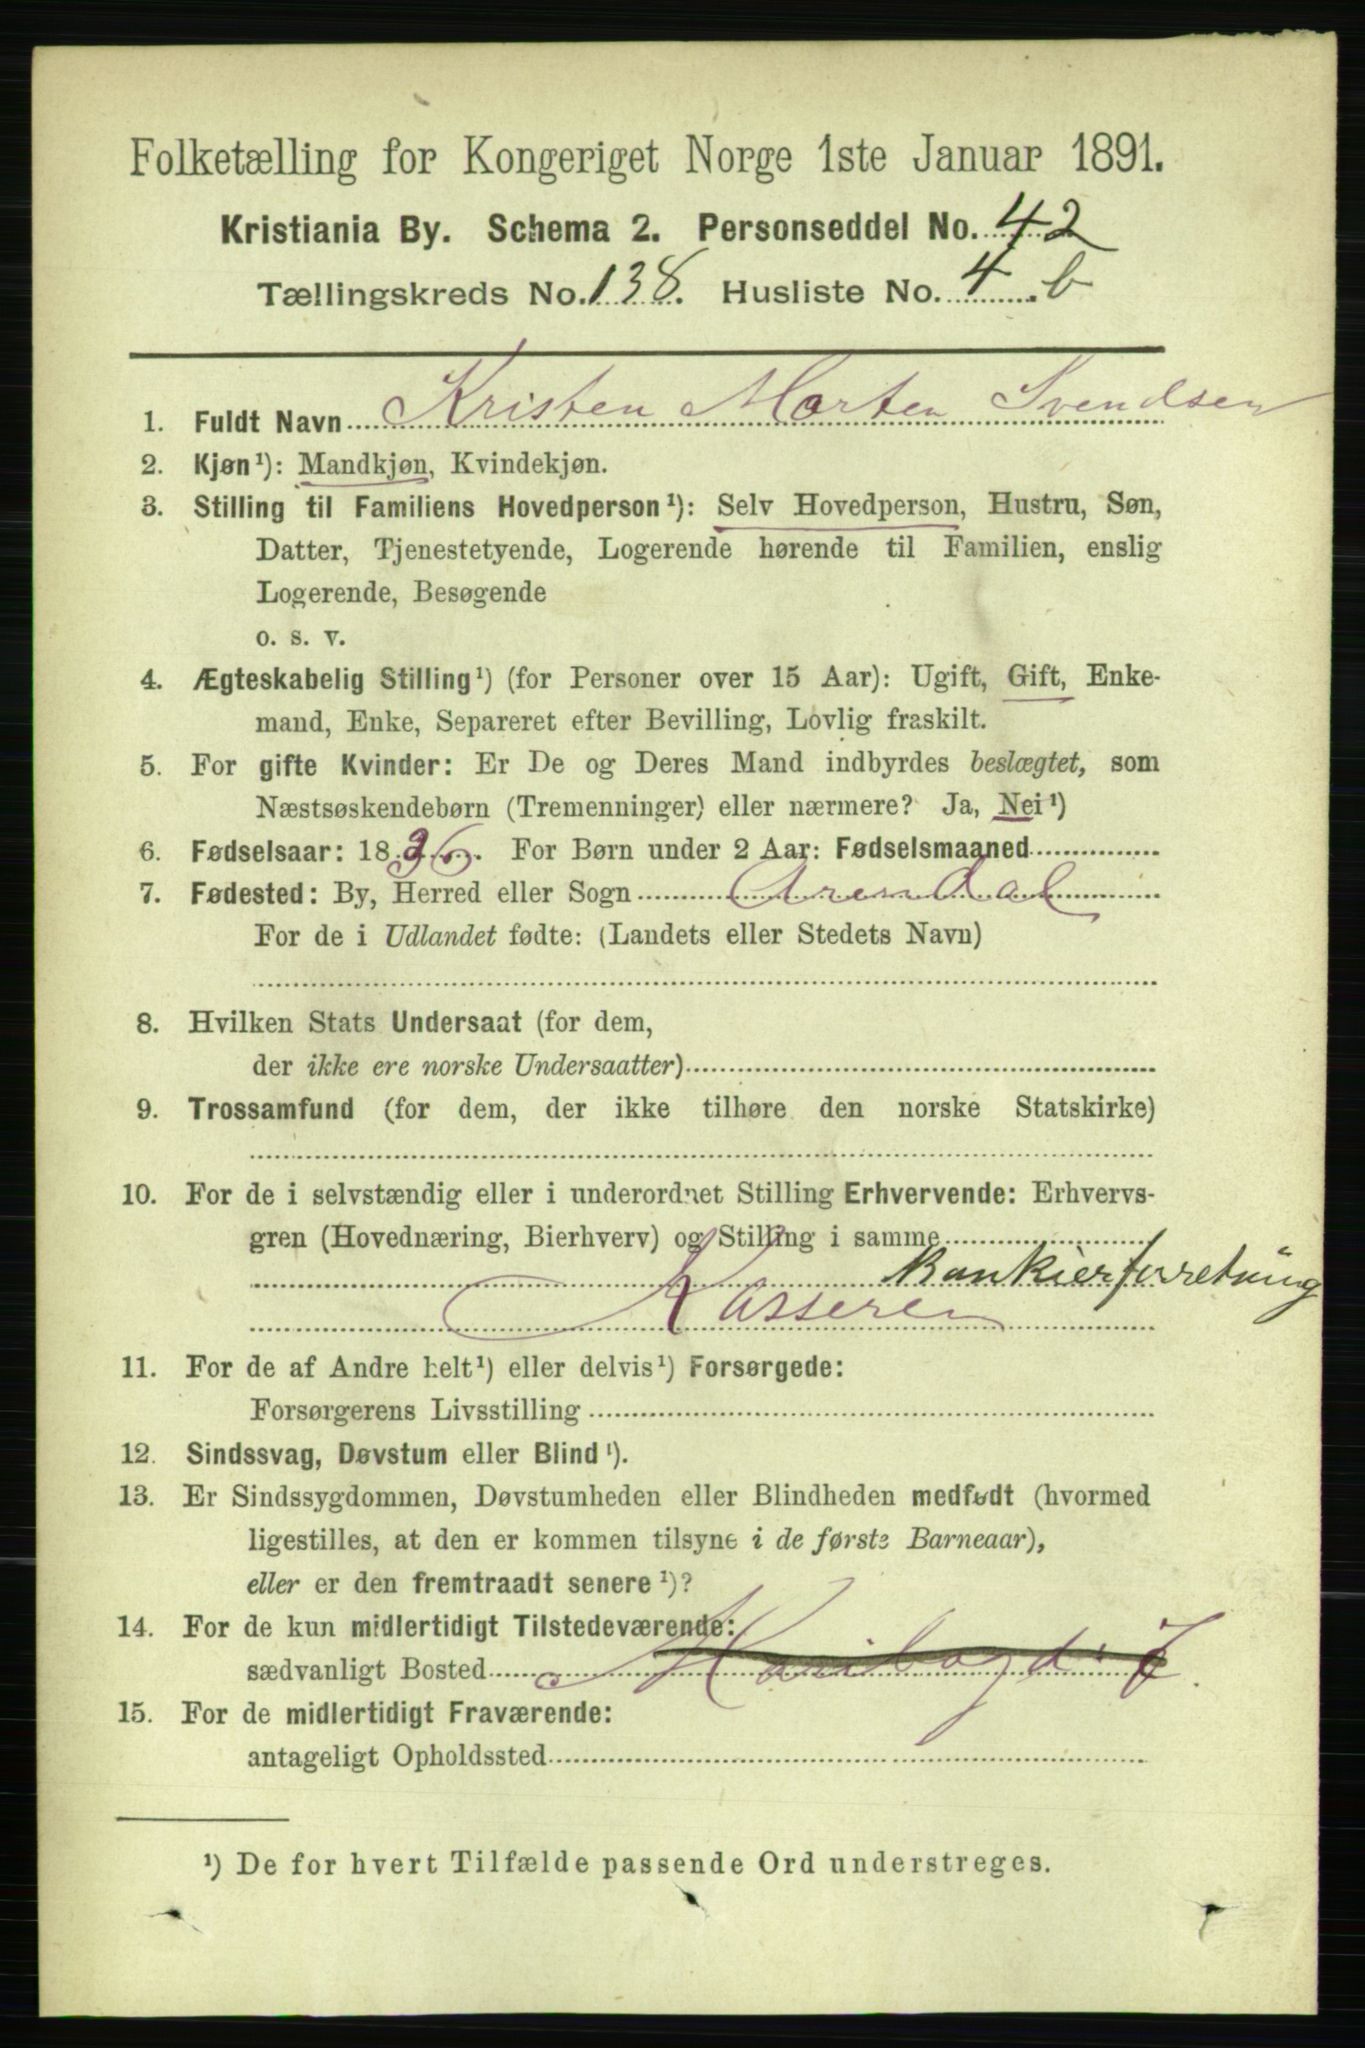 Folketælling for Kongeriget Norge 1ste Januar 1891.
Kristiania By. Schema 2. Personseddel No. 42
Tællingskreds No. 138. Husliste No. 4 b
1. Fuldt Navn Kristen Morten Svendsen
2. Kjøn¹): Mandkjøn, Kvindekjøn.
3. Stilling til Familiens Hovedperson¹): Selv Hovedperson, Hustru, Søn,
Datter, Tjenestetyende, Logerende hørende til Familien, enslig
Logerende, Besøgende
o. s. v.
4. Ægteskabelig Stilling¹) (for Personer over 15 Aar): Ugift, Gift, Enke-
mand, Enke, Separeret efter Bevilling, Lovlig fraskilt.
5. For gifte Kvinder: Er De og Deres Mand indbyrdes beslægtet, som
Næstsøskendebørn (Tremenninger) eller nærmere? Ja, Nei¹)
6. Fødselsaar: 1836. For Børn under 2 Aar: Fødselsmaaned
7. Fødested: By, Herred eller Sogn Arendal
For de i Udlandet fødte: (Landets eller Stedets Navn)
8. Hvilken Stats Undersaat (for dem,
der ikke ere norske Undersaatter)
9. Trossamfund (for dem, der ikke tilhøre den norske Statskirke)
10. For de i selvstændig eller i underordnet Stilling Erhvervende: Erhvervs-
gren (Hovednæring, Bierhverv) og Stilling i samme
Bankierforretning
Kasserer
11. For de af Andre helt¹) eller delvis¹) Forsørgede:
Forsørgerens Livsstilling
12. Sindssvag, Døvstum eller Blind¹).
13. Er Sindssygdommen, Døvstumheden eller Blindheden medfødt (hvormed
ligestilles, at den er kommen tilsyne i de første Barneaar),
eller er den fremtraadt senere¹)?
14. For de kun midlertidigt Tilstedeværende:
sædvanligt Bosted
15. For de midlertidigt Fraværende:
antageligt Opholdssted
¹) De for hvert Tilfælde passende Ord understreges.